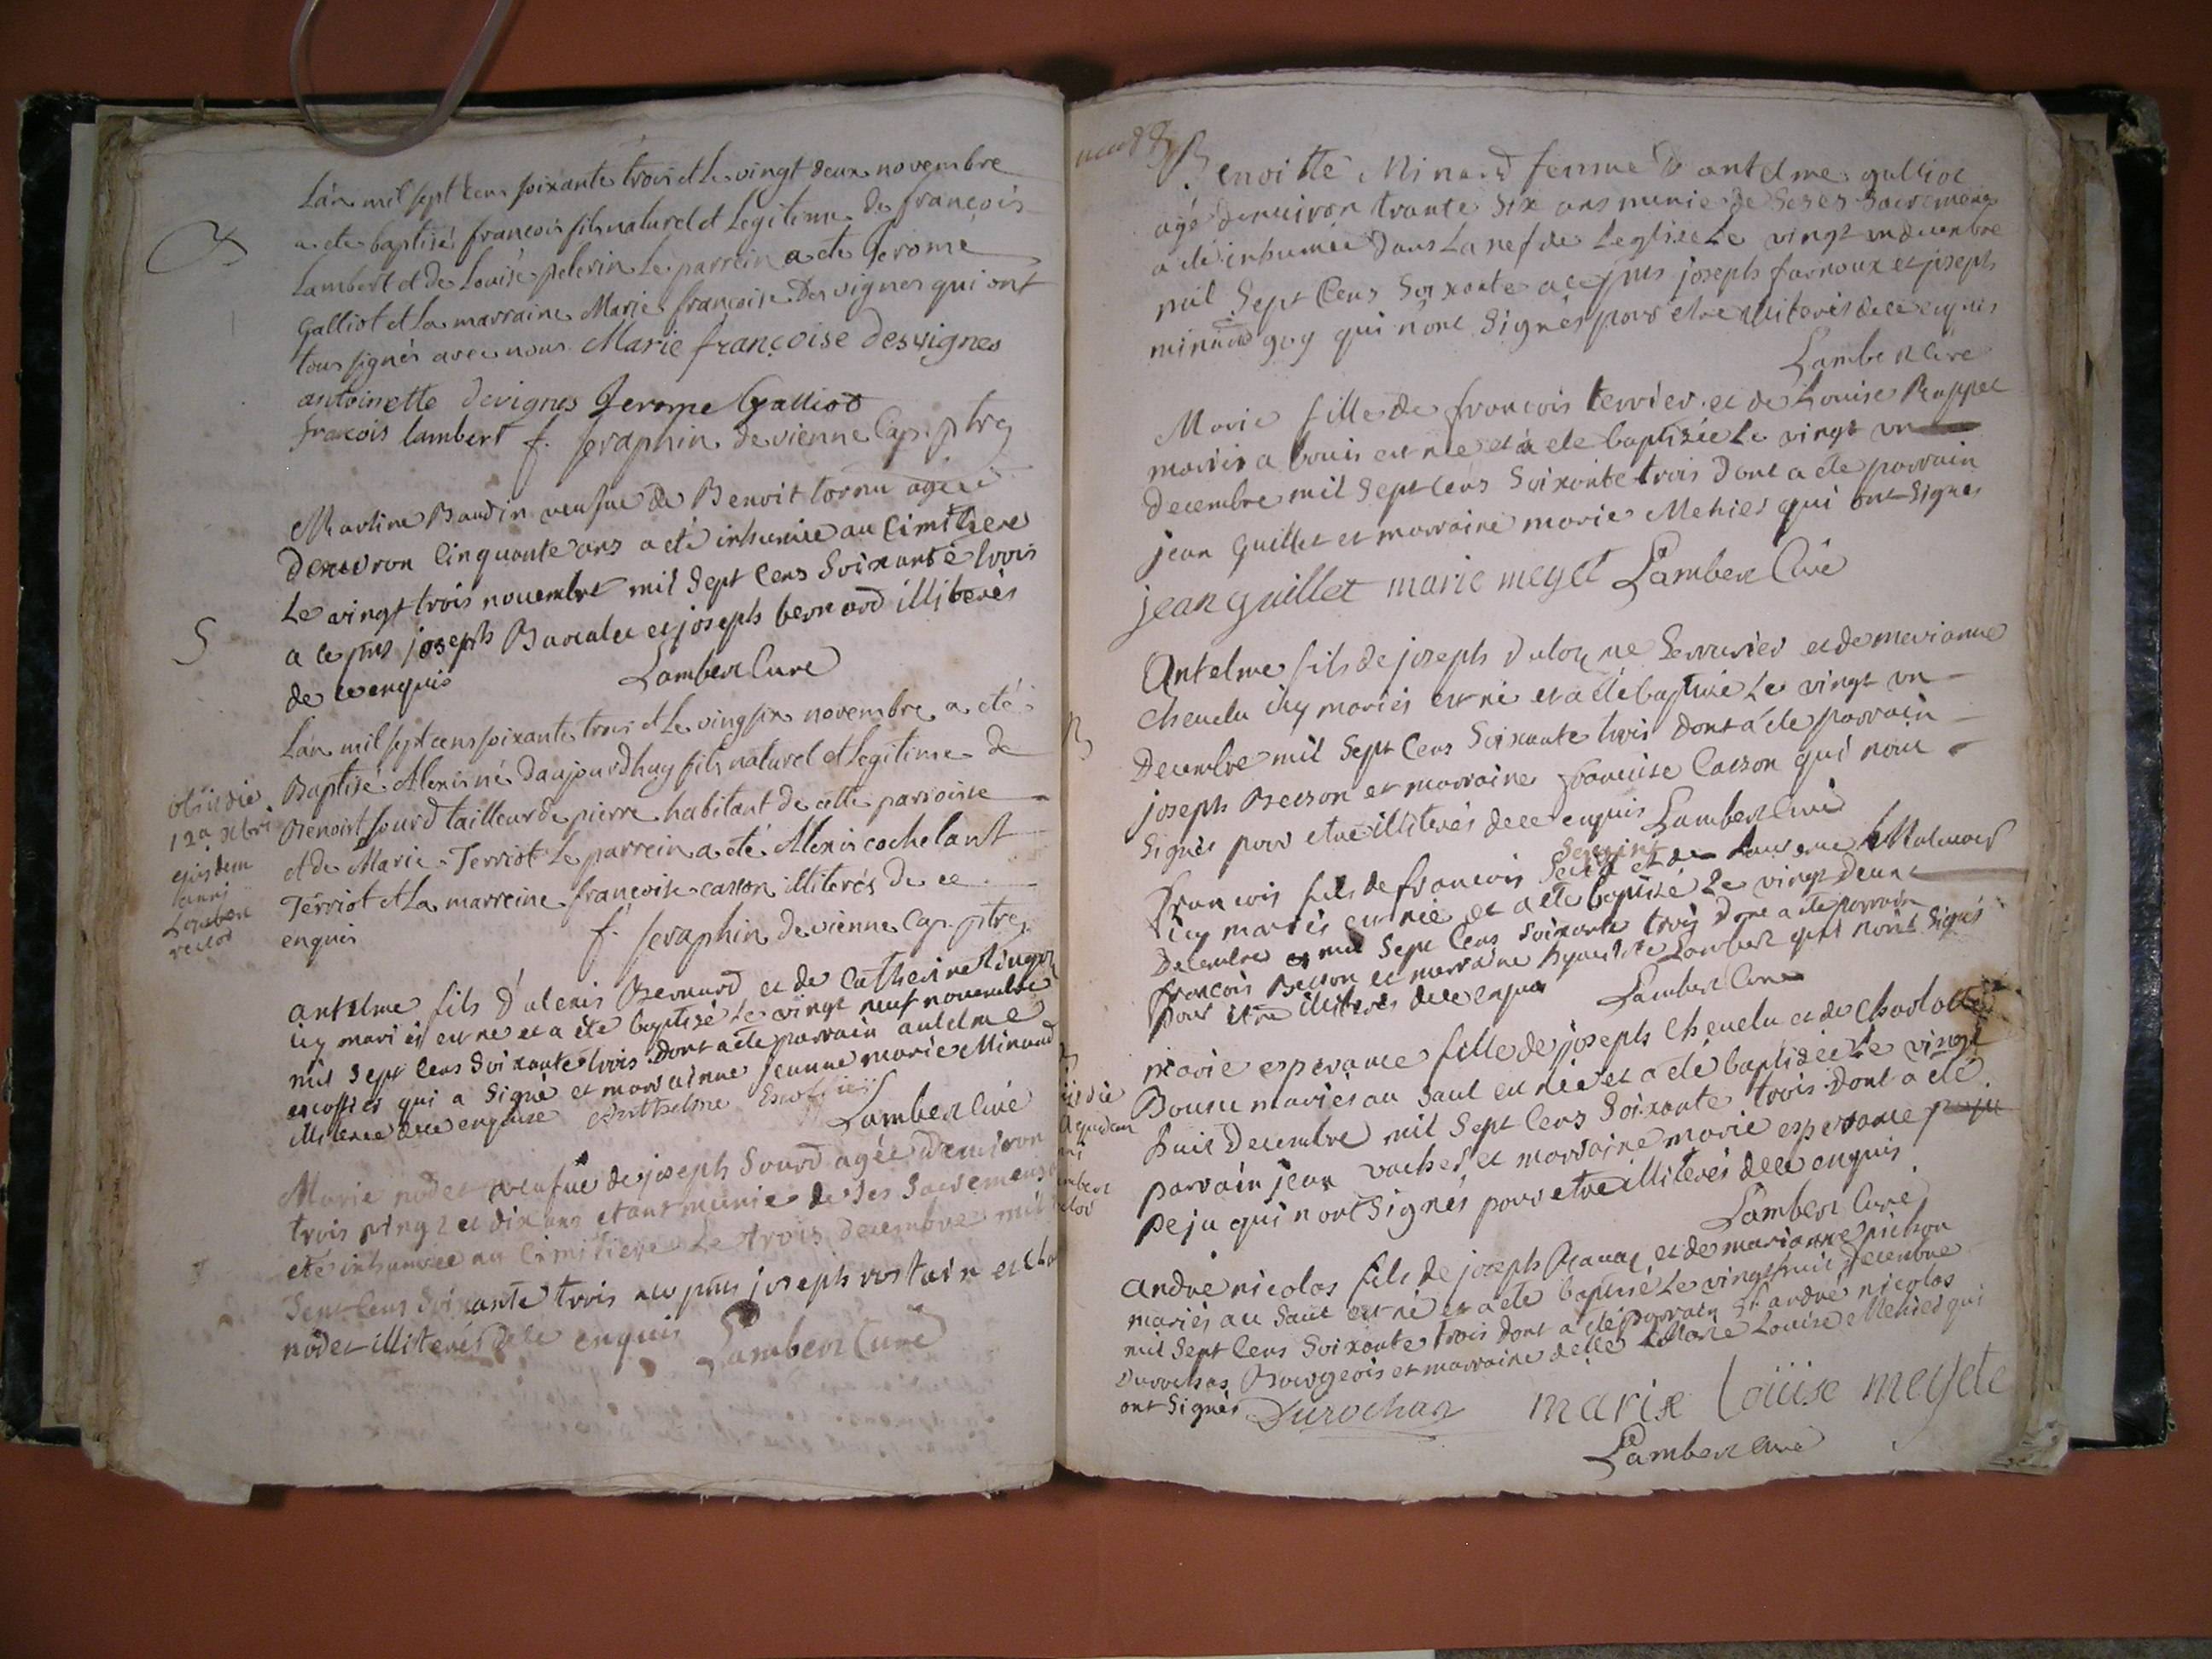 L'an mil sept cens soixante trois et le vingt deux novembre
a ete baptisé françois fils naturel et legitime de françois
Lambert et de Louise pelerin le parrein a ete Jerome
Galliot et la marraine Marie françoise Desvignes qui ont
tous signés avec nous Marie françoise desvignes
antoinette devignes Jerome Galliod
francois lambert f. seraphin de vienne Cap. ptre
Marline Baudin veufve de Benoit tornu agée
Denviron Cinquante ans a eté inhumée au Cimitiere
Le vingt trois novembre mil Sept Cens Soixante trois
a ce pns joseph et joseph bernard illiterés
de ce enquis Lambert Curé
S
L'an mil sept cens soixante trois et le vingt six novembre a eté
Baptisé Alexis né d'aujourdhuy fils naturel et legitime de
Benoist sourd tailleur de pierre habitant de cette parroisse
et de Marie Terriot le parrein a eté Alexis cochelant
Terriot et la marreine françoise casson illiterés de ce
enquis f. seraphin de vienne Cap. ptre
obiit die
12a Xbri
ejusdem
anni
Lambert
rector
antelme fils d'alexis Bernard et de Catherine
icy mariés est né et a été baptisé Le vingt neuf novembre
mil Sept Cens Soixante trois dont a ete parrain antelme
escoffier qui a Signé et marrainne jeanne marie Minand
illiterée de ce enquise Antthelme Escoffier
Lambert Curé
Marie nodet veufve de joseph Sourd agée denviron
trois vingt et dix ans etant munie de Ses Sacremens
eté inhumée au Cimitiere Le trois decembre mil
Sept Cens Soixante trois a ce pns joseph vostain et
nodet illiterés de ce enquis Lambert Curé
Benoitte Minard femme D'antelme galliot
agé denviron trante Six ans munie de Sesets Sacremens
a été inhumée dans La nef de Leglise Le vingt un decembre
mil Sept Cens Soixante a ce pns joseph farnoux et joseph
minard guy qui n'ont Signés pour etre illiterés de ce enquis
Lambert Curé
Marie fille de francois terrier et de Louise Rappet
mariés a bouis est née et a ete baptisée Le vingt un
Decembre mil Sept Cens Soixante trois Dont a ete parrain
jean guillet et marraine marie Mehier qui ont Signés
jean guillet marie meyet Lambert Curé
B
Antelme fils de joseph dulogne Serrurier et de merianne
Chevelu icy mariés est né et a été baptisé Le vingt un
Decembre mil Sept Cens Soixante trois Dont a ete parrain
joseph Besson et marraine francoise Casson qui n'ont
Signés pour etre illiterés de ce enquis Lambert Curé
francois fils de francois et de
icy mariés est né et a ete baptisé Le vingt deux
Decembre mil Sept Cens Soixante trois dont a ete parrain
francois Besson et marraine Lambert qui n'ont Signés
pour etre illiterés de ce enquis Lambert Curé
marie esperance fille de joseph Chevelu et de Charlotte
mariés au Saut est née et a eté baptisée Le vingt
huit Decembre mil Sept Cens Soixante trois Dont a eté
parrain jean vacher et marraine marie esperance peju
peju qui n'ont Signés pour etre illiterés de ce enquis
Lambert Curé
andre nicolas fils de joseph et de marianne pichon
mariés au Saut est né et a ete baptisé Le vingt huit Decembre
mil Sept Cens Soixante trois dont a ete parrain Sr. andré nicolas
Durochas Bourgeois et marraine delle Marie Louise Mehier qui
ont Signés Durochas marie Loüise meyete
Lambert Curé